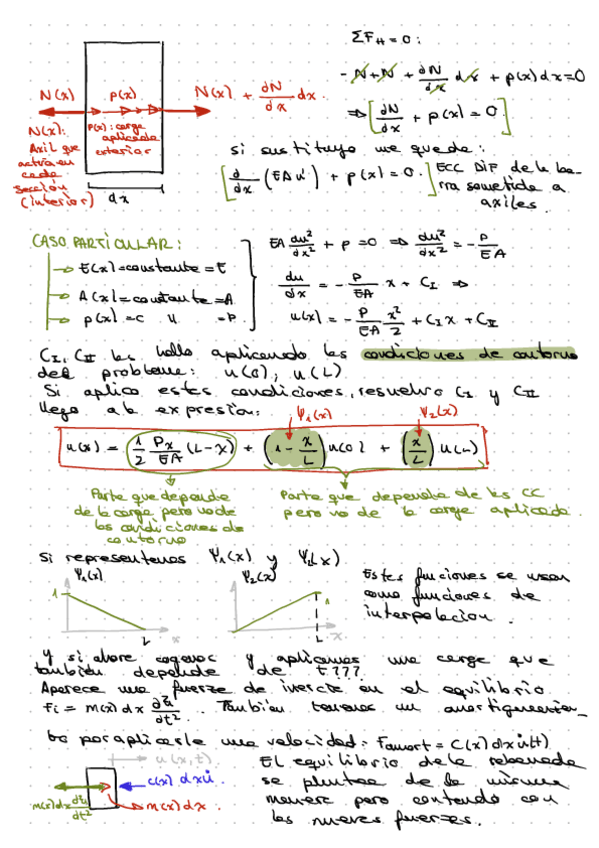 ΣF_H = 0:
- N + N + ∂N/∂x dx + p(x)dx = 0
N(x) p(x) N(x) + ∂N/∂x dx.
⇒ [∂N/∂x + p(x) = 0]
N(x):
Axil que
actúa en
cada
sección
(interior)
p(x): carga
aplicada
exterior
dx
si sustituyo me queda:
[∂/∂x (EA u') + p(x) = 0.] ECC DIF de la ba-
rra sometida a
axiles.
CASO PARTICULAR:
→ E(x) = constante = E
→ A(x) = constante = A
→ p(x) = c " = P.
EA du²/dx² + p = 0 ⇒ du²/dx² = - P/EA
du/dx = - P/EA x + C_I ⇒
u(x) = - P/EA x²/2 + C_I x + C_II
C_I, C_II las hallo aplicando las condiciones de contorno
del problema: u(0); u(L)
Si aplico estas condiciones, resuelvo C_I y C_II
llego a la expresión:
Ψ₁(x) Ψ₂(x)
u(x) = (1/2 Px/EA (L-x)) + (1 - x/L) u(0) + (x/L) u(L)
Parte que depende
de la carga pero no de
las condiciones de
contorno
Parte que depende de las CC
pero no de la carga aplicada.
Si representamos Ψ₁(x) y Ψ₂(x)
Ψ₁(x)
1
L x
Ψ₂(x)
1
L x
Estas funciones se usan
como funciones de
interpolación.
Y si ahora cogemos y aplicamos una carga que
también depende de t???
Aparece una fuerza de inercia en el equilibrio
Fi = m(x) dx ∂²u/∂t². También tenemos un amortiguamien_
to por aplicarle una velocidad: Famort = C(x) dx u̇(t)
u(x,t)
c(x) dx u̇.
m(x) dx ∂²u/∂t²
m(x) dx.
El equilibrio de la rebanada
se plantea de la misma
manera pero contando con
las nuevas fuerzas.